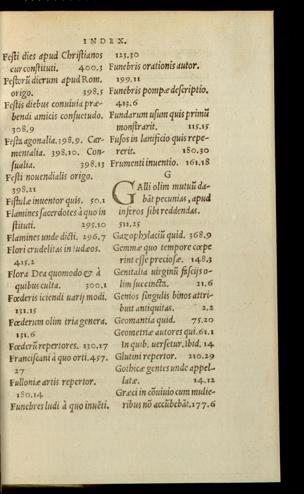 INDEX.
Festi dies apud Christianos
cur constituti. 400.3
Festorũ dierum apud Rom.
origo. 398.5
Festis diebus conuiuia præ-
bendi amicis consuetudo.
308.9
Festa agonalia. 398.9. Car-
mentalia. 398.10. Con-
sualia. 398.13
Festi nouendialis origo.
398.21
Fistulæ inuentor quis. 50.1
Flamines sacerdotes à quo in
stituti. 295.10
Flamines unde dicti. 296.7
Flori crudelitas in Iudæos.
415.2
Flora Dea quomodo & à
quibus culta. 300.1
Fœderis iciendi uarij modi.
131.15
Fœderum olim tria genera.
131.6
Fœderũ repertores. 130.17
Franciscani à quo orti. 457.
27
Fulloniæ artis repertor.
180.14
Funebres ludi à quo inuẽti.
123.30
Funebris orationis autor.
199.11
Funebris pompæ descriptio.
413.6
Fundarum usum quis primũ
monstrarit. 115.15
Fusos in lanificio quis repe-
rerit. 180.30
Frumenti inuentio. 161.18
G
Galli olim mutuũ da-
bãt pecunias, apud
inferos sibi reddendas.
511.25
Gazophylaciũ quid. 368.9
Gemmæ quo tempore cœpe
rint esse preciosæ. 148.3
Genitalia uirginũ fascijs o-
lim succincta. 21.6
Gentos singulis binos attri-
but antiquitas. 2.2
Geomantia quid. 75.20
Geometriæ autores qui. 61.1
In quib. uersetur. Ibid. 14
Glutini repertor. 210.29
Gothicæ gentes unde appel-
latæ. 14.12
Græci in cõuiuio cum mulie-
ribus nõ accũbebãt. 177.6